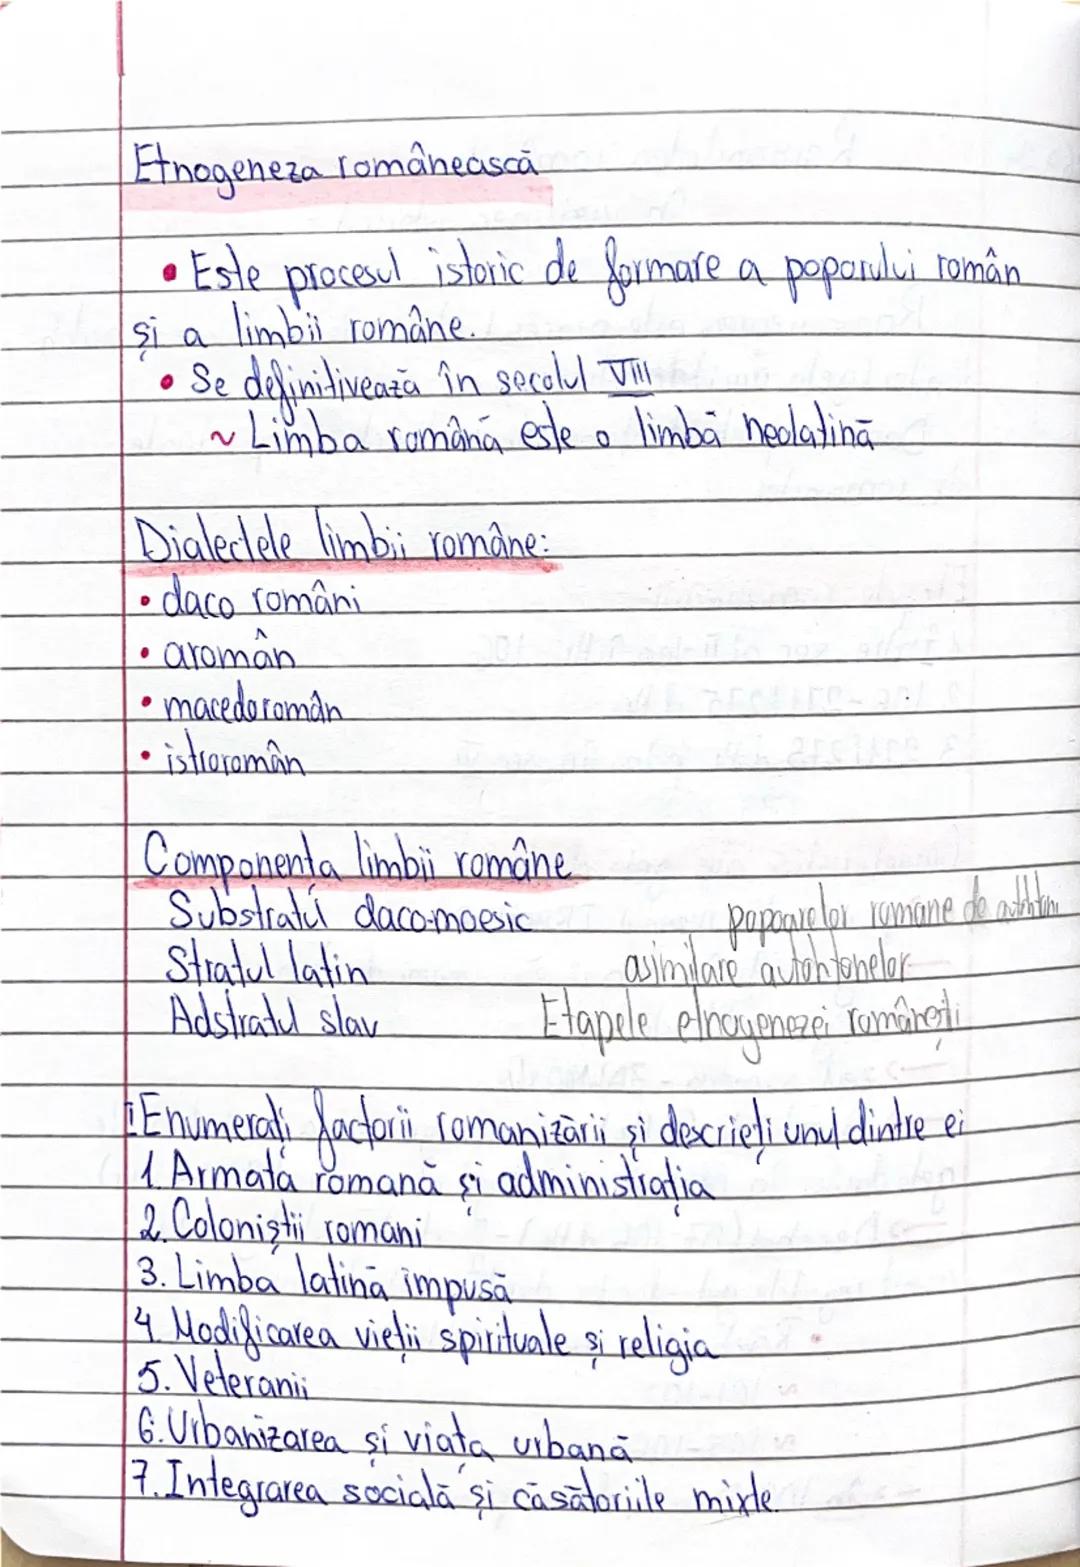 Etnogeneza românească
• Este procesul istoric de formare a poporului român
și a limbii române.
• Se definitivează în secolul VIII
~ Limba română este o limbă neolatină
Dialectele limbii române:
• daco români
• aromân
• macedoromân
• istroromân
Componența limbii române
Substratul daco-moesic
popoarelor romane de
Stratul latin
asimilare autohtonelor
Adstratul slav
Etapele etnogenezei românești
Enumerați factorii romanizării și descrieți unul dintre ei
1. Armata romană și administrația
2. Coloniștii romani
3. Limba latină impusă
4. Modificarea vieții spirituale și religia
5. Veteranii
6. Urbanizarea și viața urbană
7. Integrarea socială și căsătoriile mixte